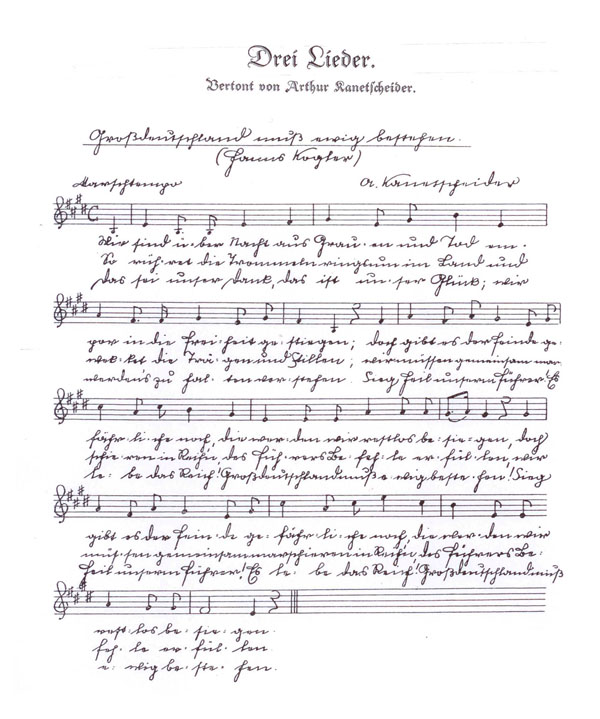 Drei Lieder.
Vertont von Arthur Kanetscheider.
Großdeutschland muß ewig bestehen.
(Hanns Kogler)
Marschtempo
A. Kanetscheider
Wir sind ü-ber Nacht aus Grau-en und Tod em-
So rüh-ret die Trommeln ringsum im Land und
Das sei unser Dank, das ist un-ser Glück; wir
por in die Frei-heit ge-stiegen; doch gibt es der Feinde ge-
wek-ket die Trä-gen und Stillen; wir müssen gemeinsam mar-
werden's zu hal-ten ver-stehen. Sieg Heil unserm Führer! Es
fähr-li-che noch, die wer-den wir restlos be-sie-gen, doch
schie-ren in Reih'n des Füh-rers Be-feh-le er-fül-len, wir
le-be das Reich! Großdeutschland muß e-wig beste-hen! Sieg
gibt es der Fein-de ge-fähr-li-che noch, die wer-den wir
müs-sen gemeinsam marschieren in Reih'n des Führers Be-
Heil unserm Führer! Es le-be das Reich! Großdeutschland muß
rest-los be-sie-gen.
feh-le er-fül-len
e-wig be-ste-hen.